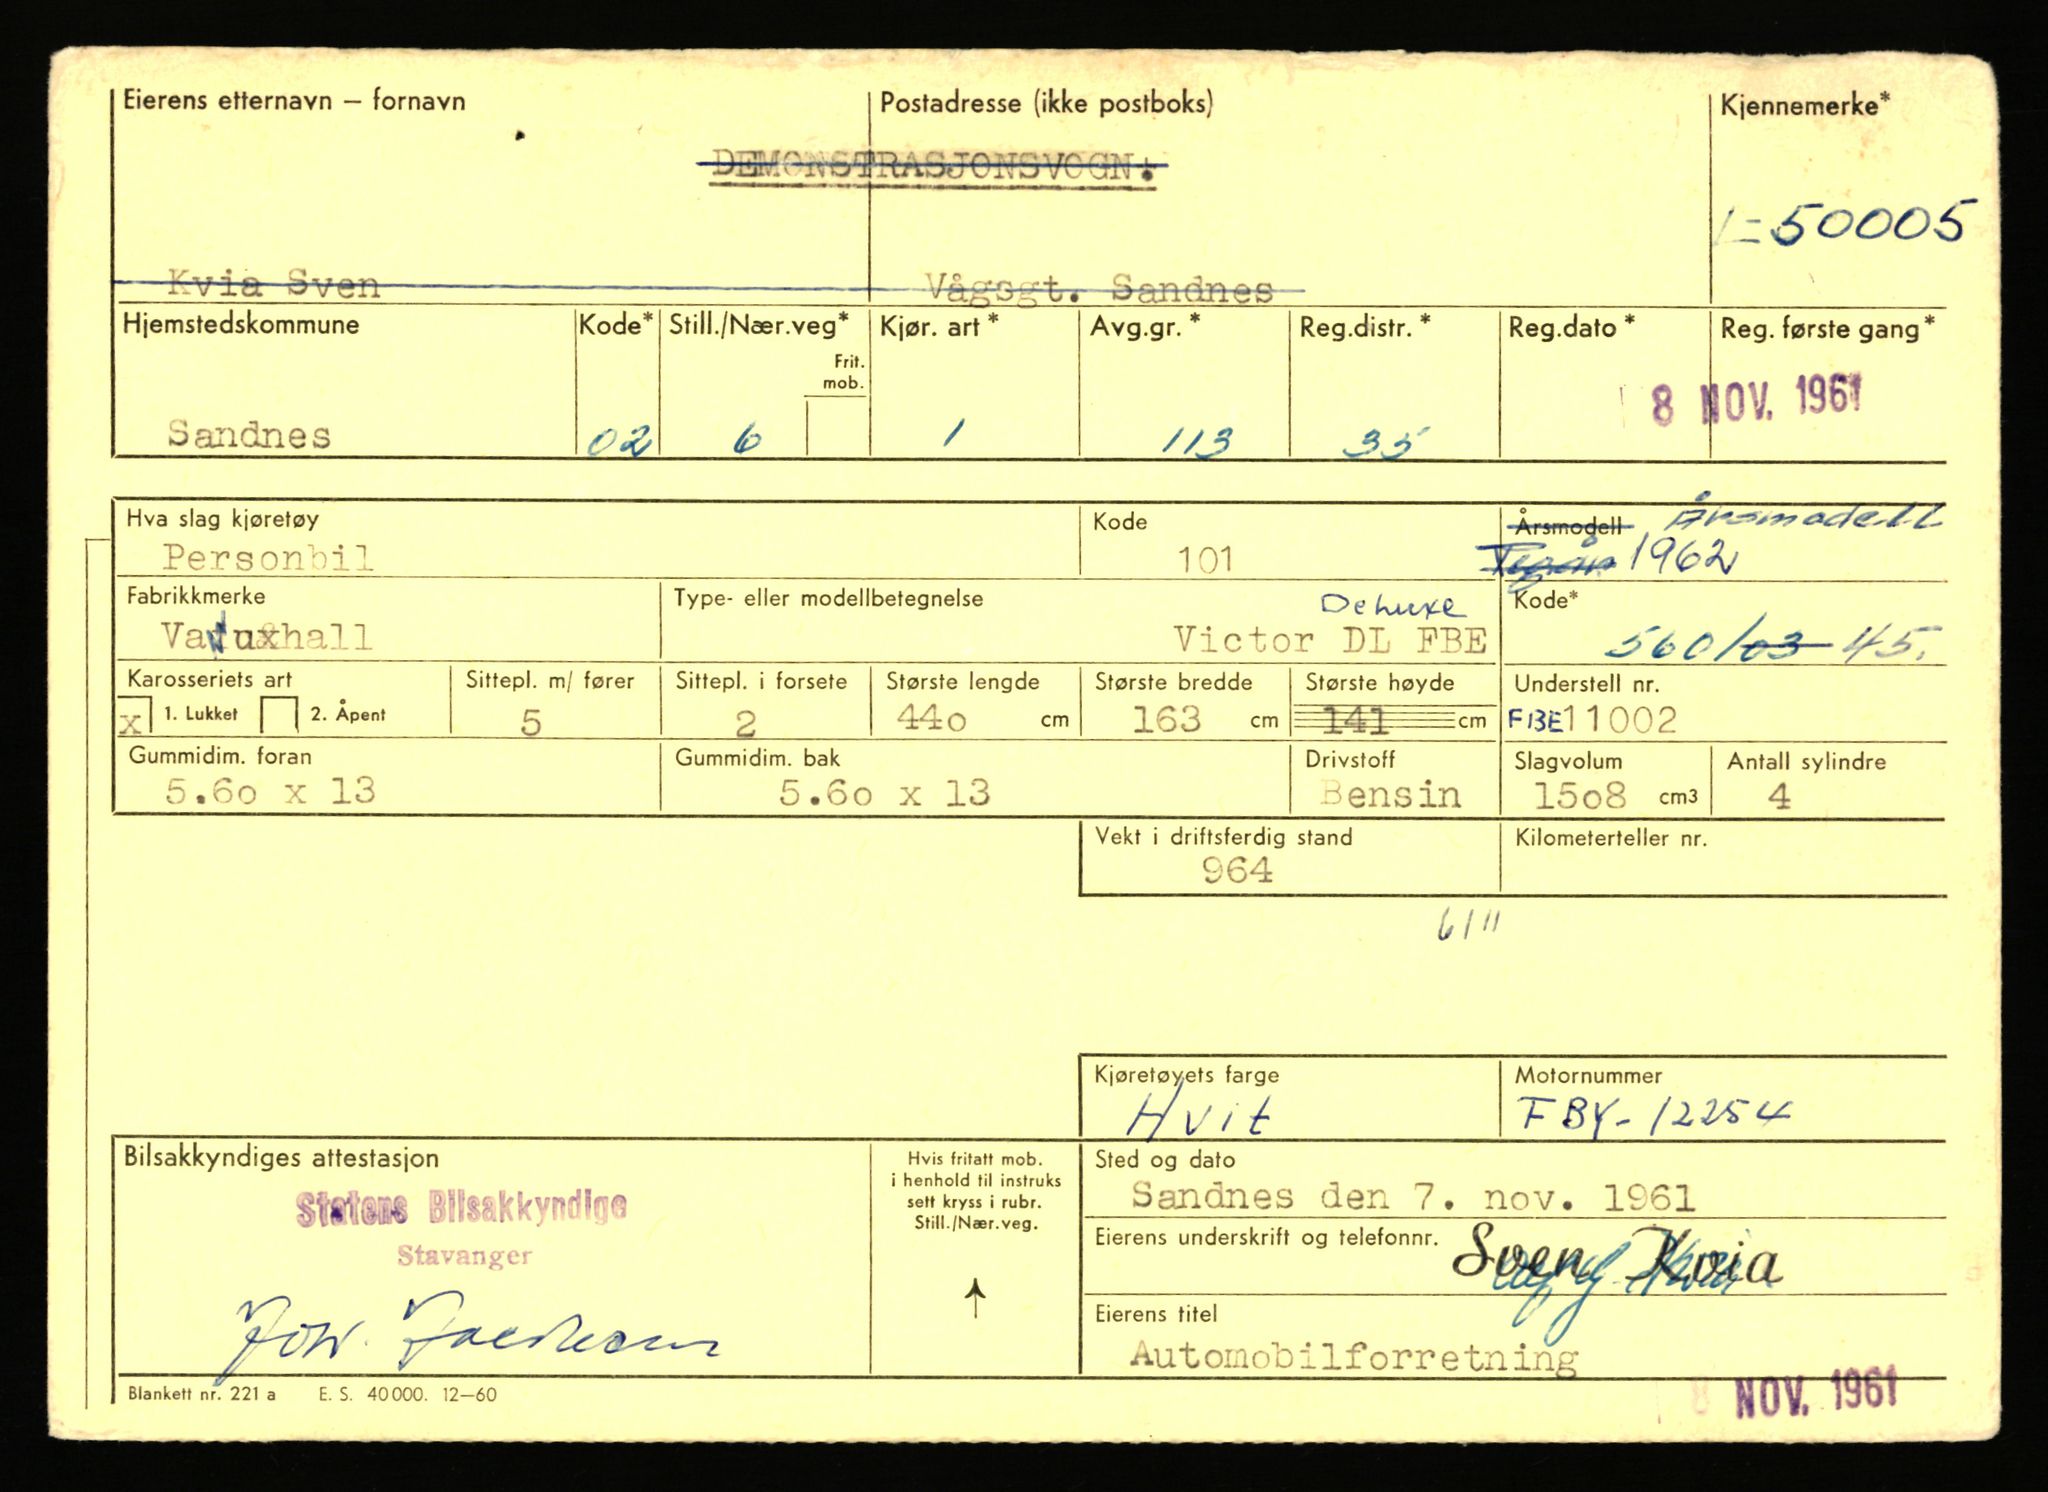 Eierens etternavn – fornavn Postadresse (ikke postboks) Kjennemerke*
DEMONSTRASJONSVOGN:
L-50005
Kvia Sven Vågsgt. Sandnes
Hjemstedskommune Kode* Still./Nær.veg* Kjør. art* Avg.gr.* Reg.distr.* Reg.dato* Reg. første gang*
Frit.
mob.
8 NOV. 1961
Sandnes 02 6 1 113 35
Hva slag kjøretøy Kode Årsmodell Årsmodell
Personbil 101 1962
Fabrikkmerke Type- eller modellbetegnelse DeLuxe Kode*
Vauxhall Victor DL FBE 560/03 45.
Karosseriets art Sittepl. m/ fører Sittepl. i forsete Største lengde Største bredde Største høyde Understell nr.
x 1. Lukket 2. Åpent 5 2 44o cm 163 cm 141 cm FBE11002
Gummidim. foran Gummidim. bak Drivstoff Slagvolum Antall sylindre
5.6o x 13 5.6o x 13 Bensin 15o8 cm3 4
Vekt i driftsferdig stand Kilometerteller nr.
964
6/11
Kjøretøyets farge Motornummer
Hvit FBY-12254
Bilsakkyndiges attestasjon Hvis fritatt mob.
i henhold til instruks
sett kryss i rubr.
Still./Nær.veg.
Sted og dato
Statens Bilsakkyndige
Stavanger
Sandnes den 7. nov. 1961
Eierens underskrift og telefonnr. Sven Kvia
Eierens titel
Automobilforretning
Blankett nr. 221 a E. S. 40 000. 12–60
8 NOV. 1961